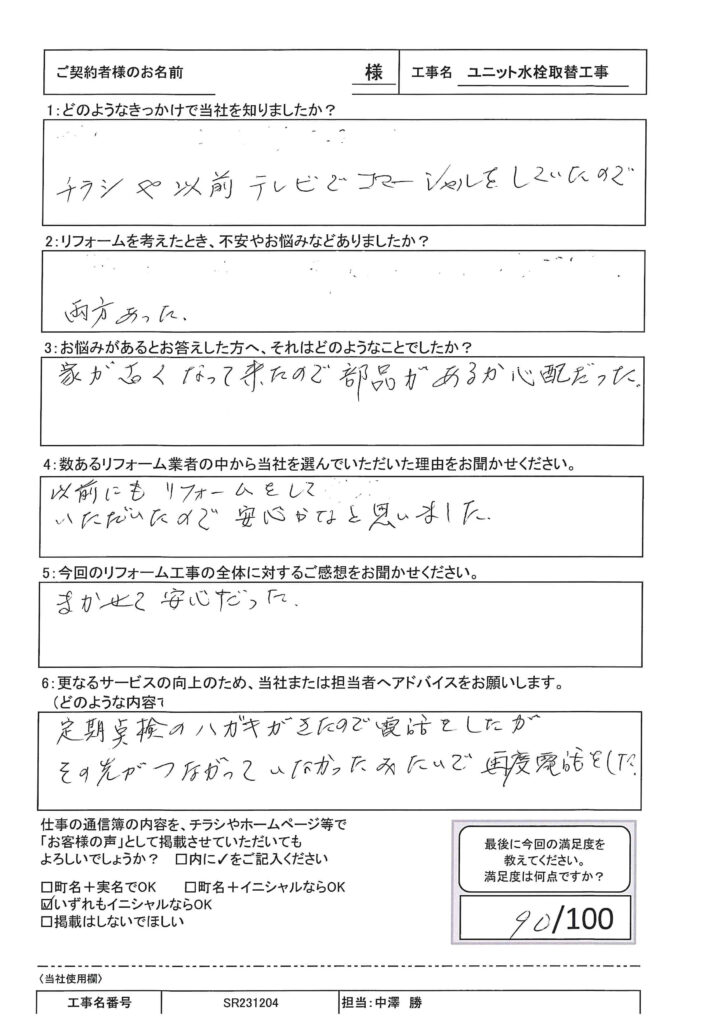 ご契約者様のお名前 様 工事名 ユニット水栓取替工事
1：どのようなきっかけで当社を知りましたか？
チラシや以前テレビでコマーシャルをしていたので
2：リフォームを考えたとき、不安やお悩みなどありましたか？
両方あった.
3：お悩みがあるとお答えした方へ、それはどのようなことでしたか？
家が古くなって来たので部品があるか心配だった。
4：数あるリフォーム業者の中から当社を選んでいただいた理由をお聞かせください。
以前にもリフォームをして
いただいたので安心かなと思いました.
5：今回のリフォーム工事の全体に対するご感想をお聞かせください。
まかせて安心だった.
6：更なるサービスの向上のため、当社または担当者へアドバイスをお願いします。
（どのような内容で
定期点検のハガキがきたので電話をしたが
その先がつながっていなかったみたいで再度電話をした.
仕事の通信簿の内容を、チラシやホームページ等で
「お客様の声」として掲載させていただいても
よろしいでしょうか？ □内に✓をご記入ください
□町名＋実名でOK □町名＋イニシャルならOK
☑いずれもイニシャルならOK
□掲載はしないでほしい
最後に今回の満足度を
教えてください。
満足度は何点ですか？
90/100
〈当社使用欄〉
工事名番号 SR231204 担当：中澤 勝